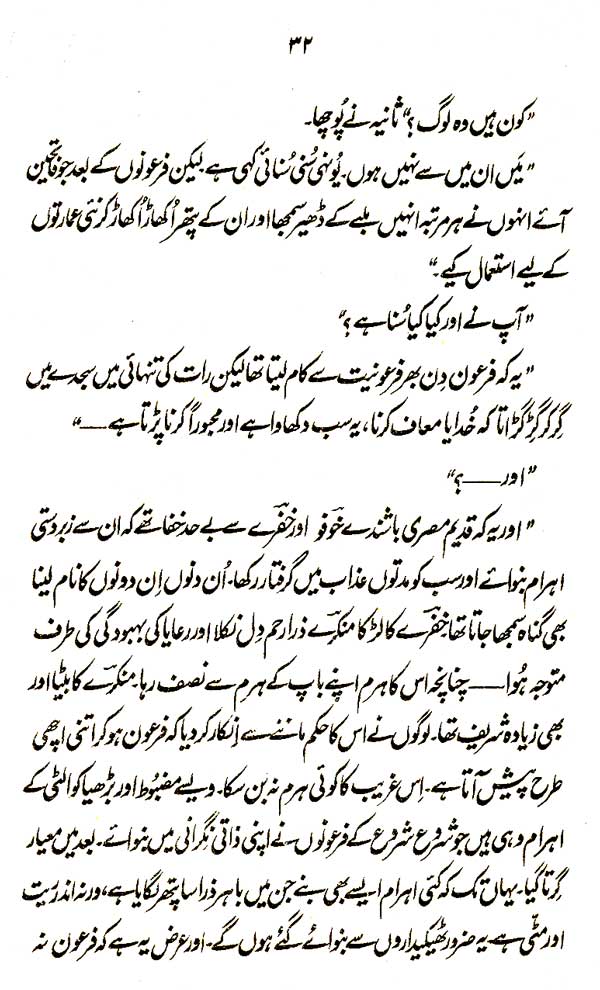 ۳۲
"کون ہیں وہ لوگ؟" ثانیہ نے پُوچھا۔
"میَں ان میں سے نہیں ہوں۔ یُونہی سُنی سُنائی کہی ہے لیکن فرعونوں کے بعد جو فاتحین
آئے انہوں نے ہر مرتبہ انہیں ملبے کے ڈھیر سمجھا اور ان کے پتھر اُکھاڑ اُکھاڑ کر نئی عمارتوں
کے لیے استعمال کیے۔"
"آپ نے اور کیا کیا سُنا ہے؟"
"یہ کہ فرعون دِن بھر فرعونیت سے کام لیتا تھا لیکن رات کی تنہائی میں سجدے میں
گِر کر گِڑگڑاتا کہ خُدایا معاف کرنا، یہ سب دکھاوا ہے اور مجبوراً کرنا پڑتا ہے——"
"اور——؟"
"اور یہ کہ قدیم مصری باشندے خوفو اور خفرے سے بے حد خفا تھے کہ ان سے زبردستی
اہرام بنوائے اور سب کو مدتوں عذاب میں گرفتار رکھا۔ اُن دنوں اِن دونوں کا نام لینا
بھی گناہ سمجھا جاتا تھا۔ خفرے کا لڑکا منکرے ذرا رحم دِل نکلا اور رعایا کی بہبودگی کی طرف
متوجہ ہُوا—— چنانچہ اس کا ہرم اپنے باپ کے ہرم سے نصف رہا۔ منکرے کا بیٹا اور
بھی زیادہ شریف تھا۔ لوگوں نے اس کا حکم ماننے سے اِنکار کر دیا کہ فرعون ہو کر اتنی اچھی
طرح پیش آتا ہے۔ اِس غریب کا کوئی ہرم نہ بن سکا۔ ویسے مضبُوط اور بڑھیا کوالٹی کے
اہرام وہی ہیں جو شروع شروع کے فرعونوں نے اپنی ذاتی نگرانی میں بنوائے۔ بعد میں معیار
گِرتا گیا۔ یہاں تک کہ کئی اہرام ایسے بھی بنے جن میں باہر ذرا سا پتھر لگایا ہے، ورنہ اندر ریت
اور مٹی ہے۔ یہ ضرور ٹھیکیداروں سے بنوائے گئے ہوں گے۔ اور عرض یہ ہے کہ فرعون نہ